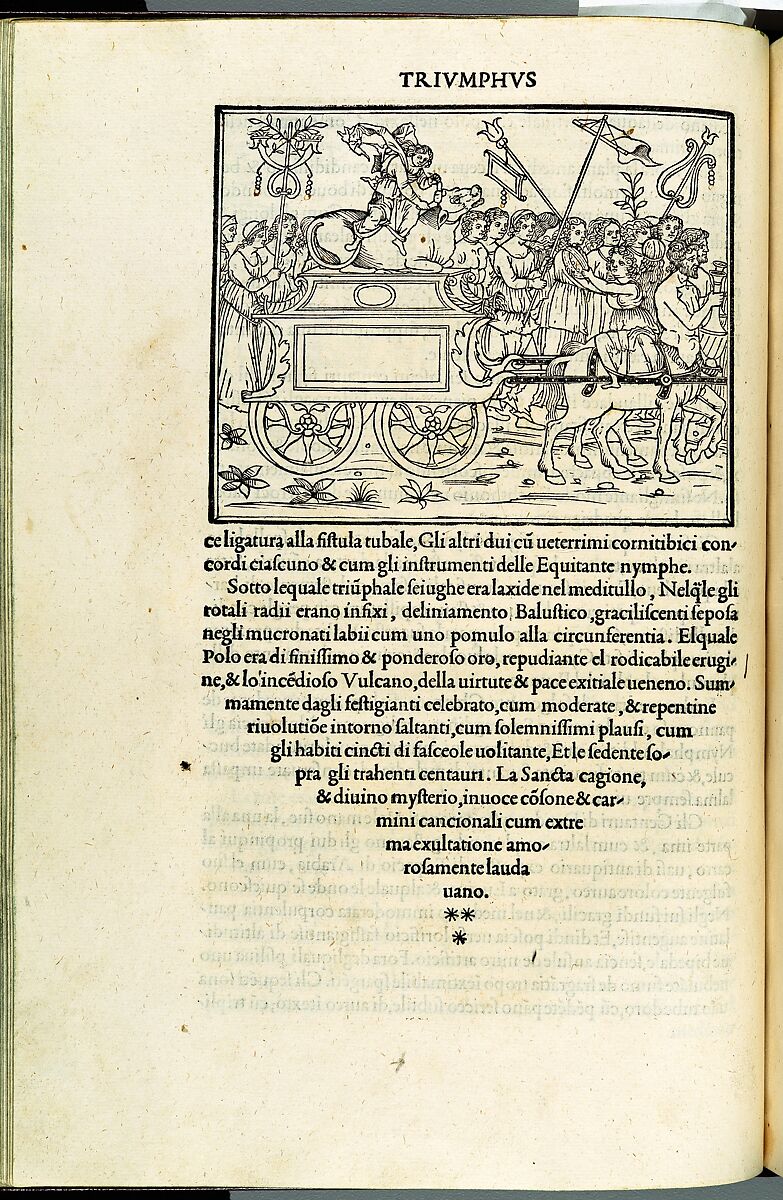 TRIVMPHVS
ce ligatura alla fiſtula tubale, Gli altri dui cũ ueterrimi cornitibici con-
cordi ciaſcuno & cum gli inſtrumenti delle Equitante nymphe.
Sotto lequale triũphale ſeiughe era laxide nel meditullo, Nelq̃le gli
rotali radii erano infixi, deliniamento Baluſtico, graciliſcenti ſepoſa
negli mucronati labii cum uno pomulo alla circunferentia. Elquale
Polo era di finiſſimo & ponderoſo oro, repudiante el rodicabile erugi-
ne, & lo incẽdioſo Vulcano, della uirtute & pace exitiale ueneno. Sum-
mamente dagli feſtigianti celebrato, cum moderate, & repentine
riuolutiõe intorno ſaltanti, cum ſolemniſſimi plauſi, cum
gli habiti cincti di faſceole uolitante, Et le ſedente ſo-
pra gli trahenti centauri. La Sancta cagione,
& diuino myſterio, inuoce cõſone & car-
mini cancionali cum extre
ma exultatione amo-
roſamente lauda
uano.
**
*